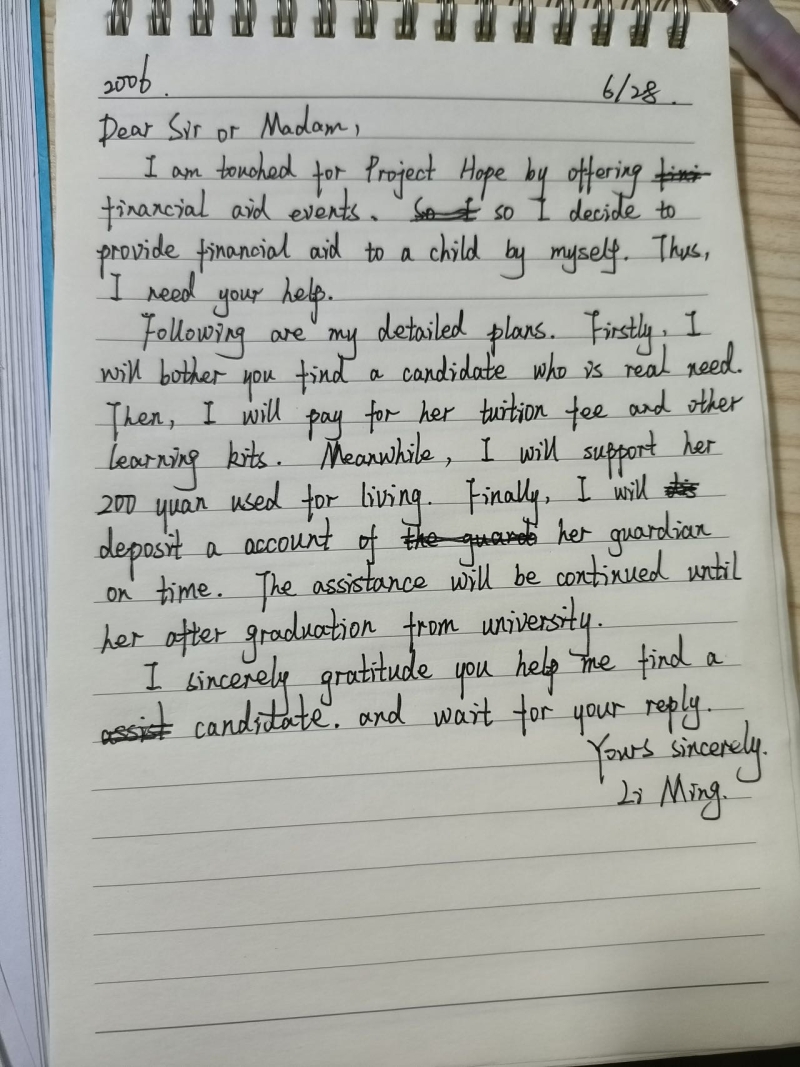 2006.
6/28.
Dear Sir or Madam,
I am touched for Project Hope by offering
financial aid events. so I decide to
provide financial aid to a child by myself. Thus,
I need your help.
Following are my detailed plans. Firstly, I
will bother you find a candidate who is real need.
Then, I will pay for her tuition fee and other
learning kits. Meanwhile, I will support her
200 yuan used for living. Finally, I will
deposit a account of her guardian
on time. The assistance will be continued until
her after graduation from university.
I sincerely gratitude you help me find a
candidate. and wait for your reply.
Yours sincerely.
Li Ming.